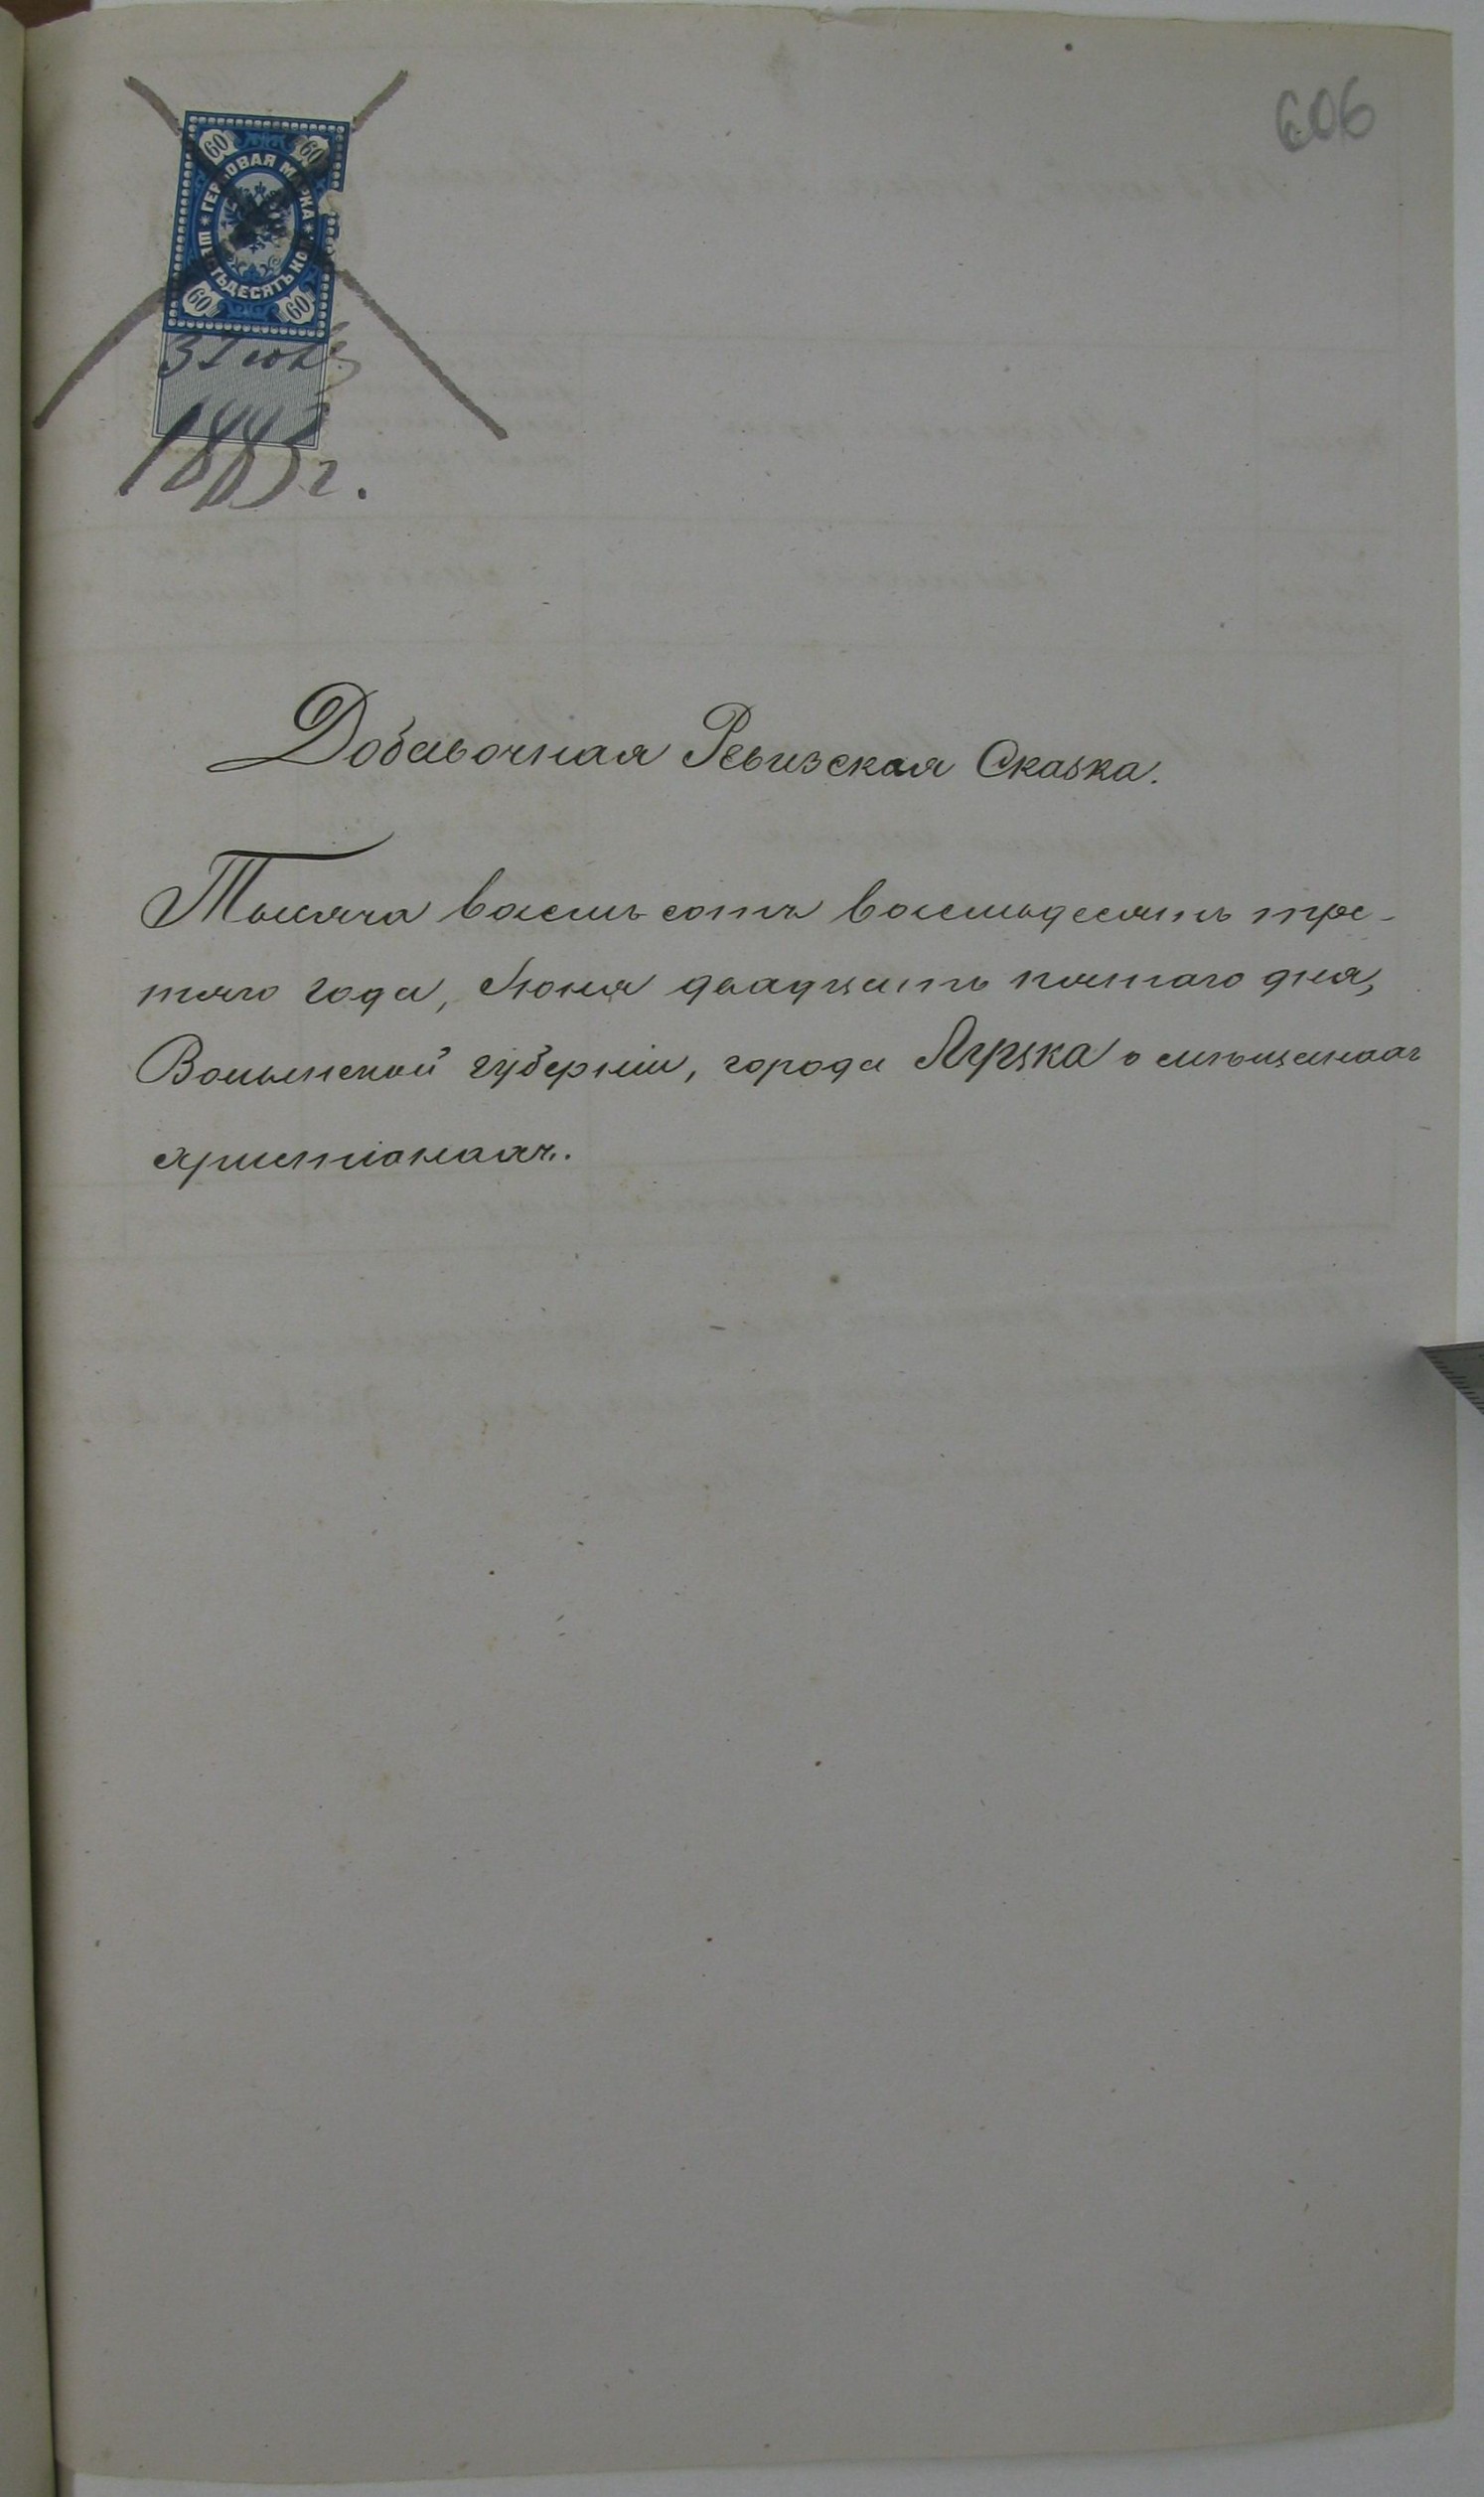 606
60 60
ГЕРБОВАЯ МАРКА
ШЕСТЬДЕСЯТЪ КОП
60 60
1883 г.
Добавочная Ревизская Сказка.
Тысяча восемь сотъ восемьдесятъ тре-
тяго года, Июня двадцать пятаго дня,
Волынской губерніи, города Луцка о мѣщанахъ
христіанахъ.